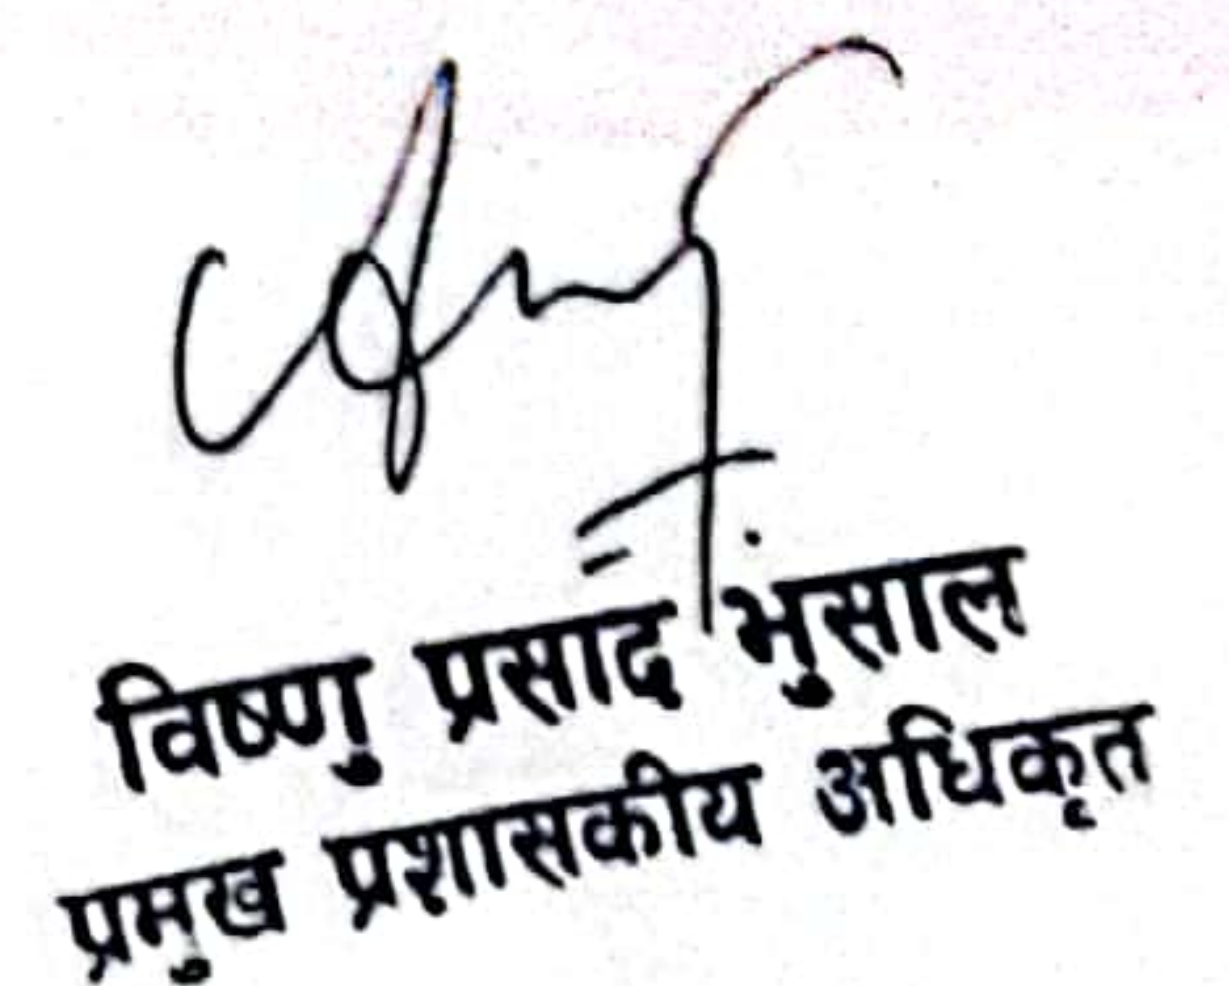 विष्णु प्रसाद भुंसाल
प्रमुख प्रशासकीय अधिकृत